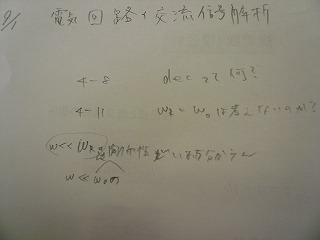 9/1 電気回路・交流信号解析
4-8 decって何?
4-11 ωk=ω0は考えないのか?
ω<<ωk
ω<<ω0の